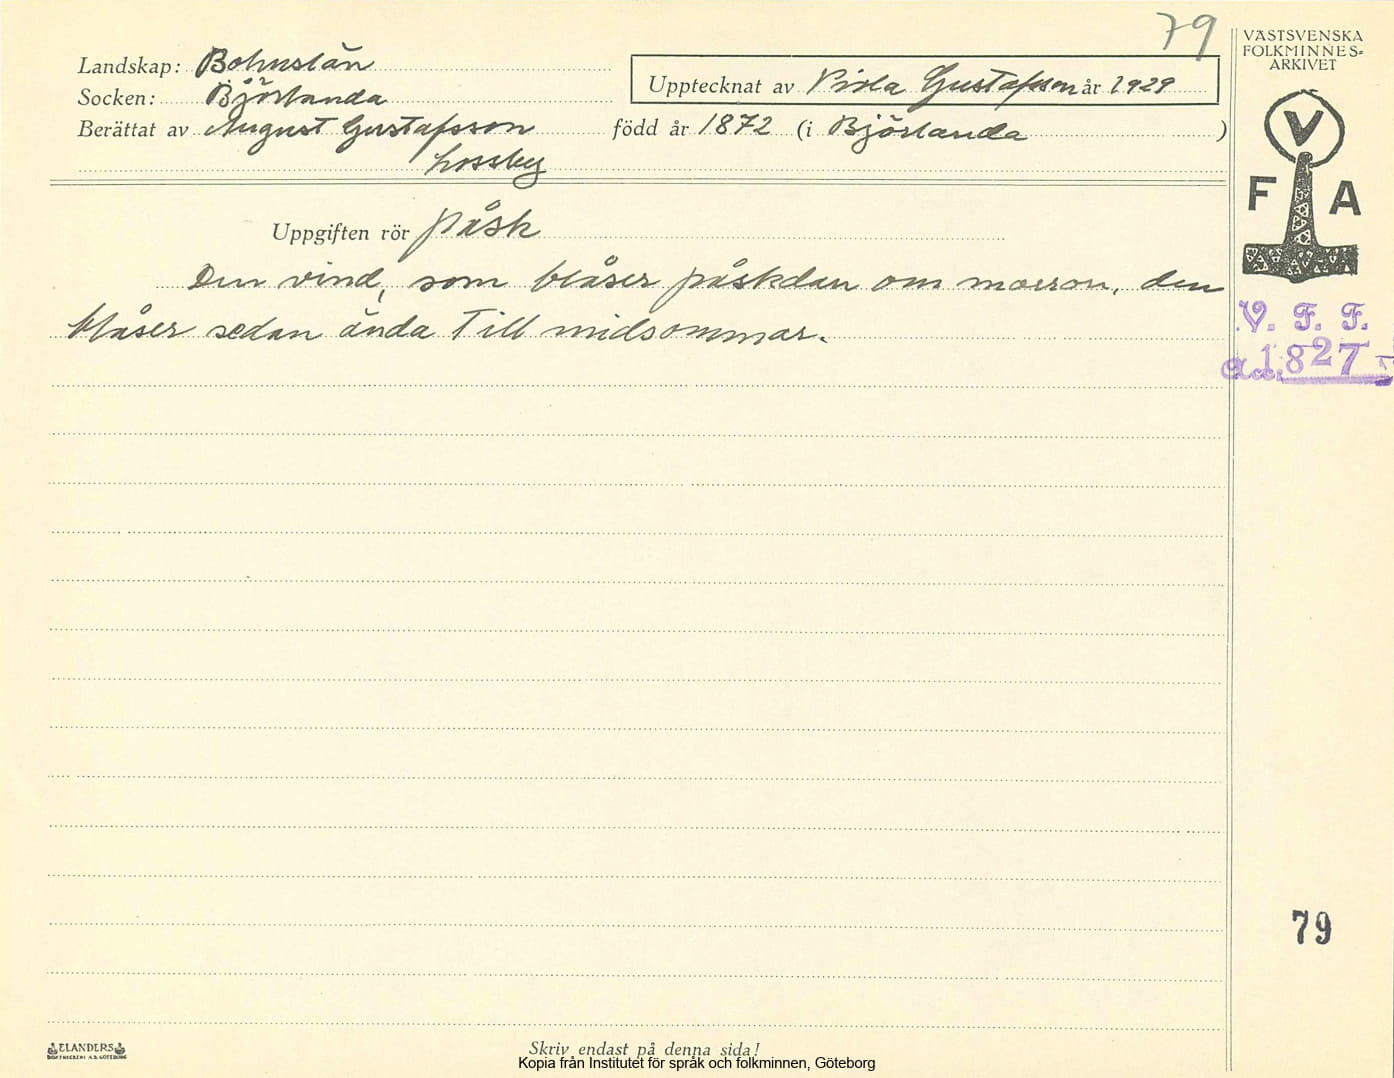 79
Landskap: Bohuslän
Socken: Björlanda
Upptecknat av Viola Gustafsson år 1929
Berättat av August Gustafsson född år 1872 (i Björlanda)
Lossby
Uppgiften rör påsk
Den vind, som blåser påskdan om morron, den
blåser sedan ända till midsommar.
VÄSTSVENSKA
FOLKMINNES-
ARKIVET
V
F A
V. F. F.
Acc. 1827
79
ELANDERS
Skriv endast på denna sida!
Kopia från Institutet för språk och folkminnen, Göteborg